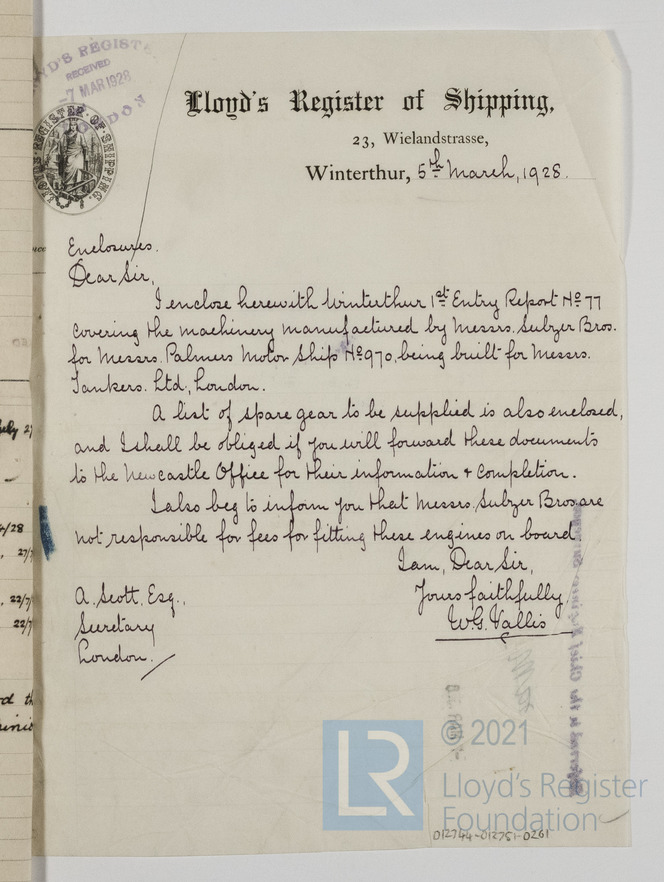 LLOYD'S REGISTER
RECEIVED
-7 MAR 1928
LONDON
LLOYD'S REGISTER OF SHIPPING.
Lloyd's Register of Shipping,
23, Wielandstrasse,
Winterthur, 5th March, 1928.
Enclosures.
Dear Sir,
I enclose herewith Winterthur 1st Entry Report No 77
covering the machinery manufactured by Messrs. Sulzer Bros.
for Messrs. Palmers Motor Ship No 970, being built for Messrs.
Tankers. Ltd, London.
A list of spare gear to be supplied is also enclosed,
and I shall be obliged if you will forward these documents
to the Newcastle Office for their information + completion.
I also beg to inform you that Messrs. Sulzer Bros are
not responsible for fees for fitting these engines on board
I am, Dear Sir,
Yours faithfully,
W.G. Vallis
A. Scott, Esq.,
Secretary
London.
Referred to the Chief Engineer Surveyor
LR
© 2021
Lloyd's Register
Foundation
012744-012751-0261